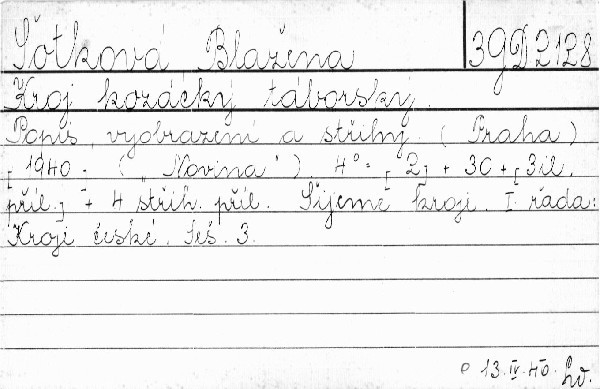 Šotková Blažena 3GD2128
Kroj kozácký táborský.
Popis, vyobrazení a střihy. (Praha)
[1940.] („Novina") 4°= [2] + 30 + [3 il.
příl.] + 4 střih. příl. Šijeme kroje. I. řada:
Kroje české. Seš. 3.
13.IV.40.